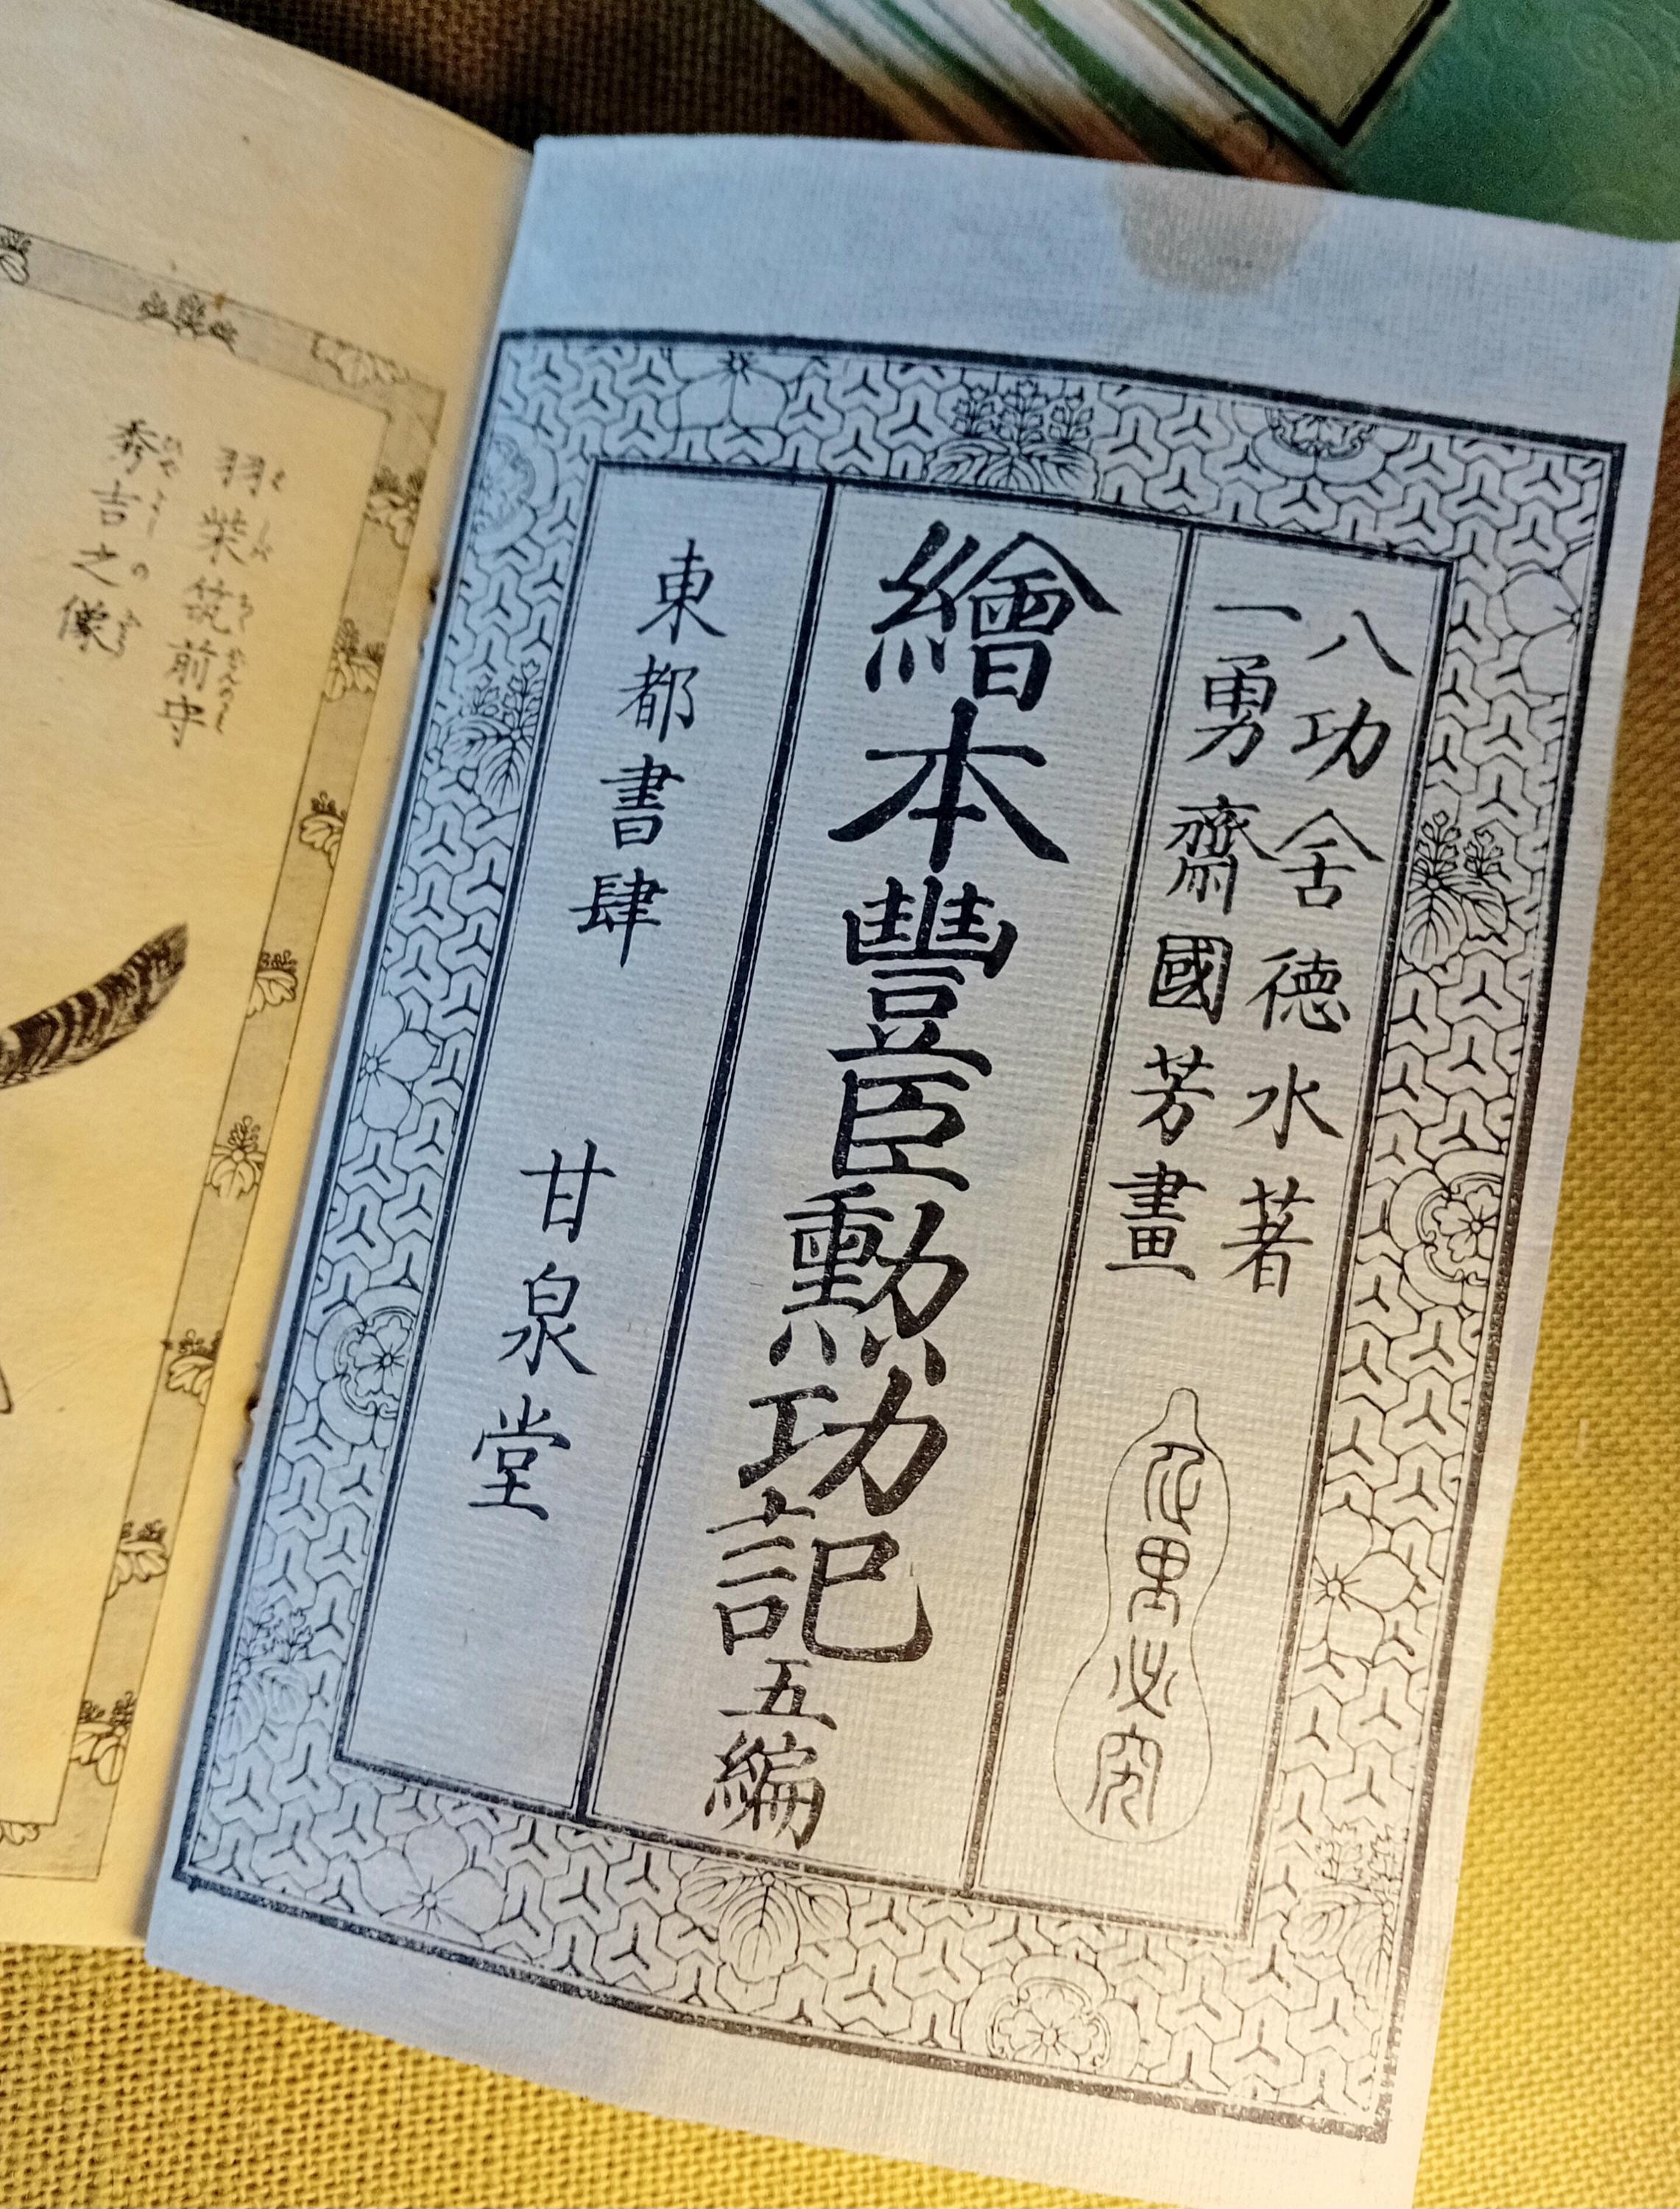 八功舎徳水著
一勇齋國芳畫
翻刻必究
繪本豐臣勲功記五編
東都書肆 甘泉堂
羽柴筑前守
秀吉之像